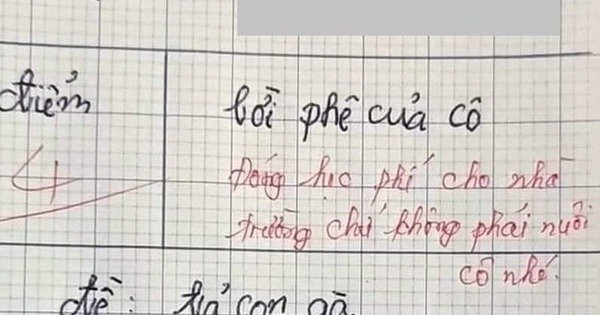 điểm
lời phê của cô
4
Đóng học phí cho nhà
trường chứ không phải nuôi
cô nhé.
đề: tả con gà.